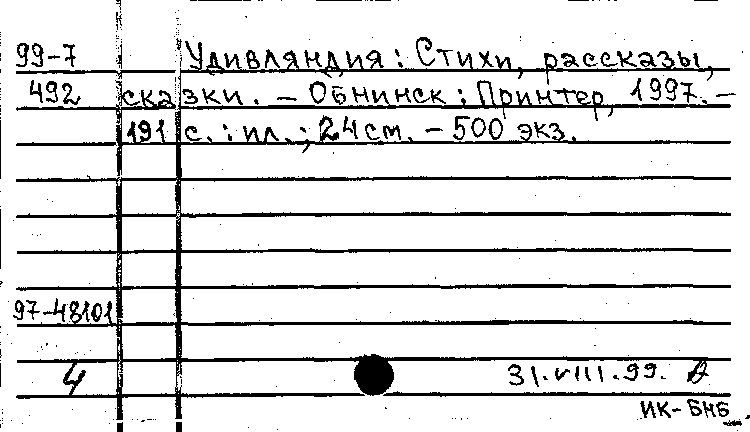 99-7 Удивляндия: Стихи, рассказы,
492 сказки. – Обнинск: Принтер, 1997. –
191 с.: ил.; 24 см. – 500 экз.
97-48101
4 31.VIII.99.
ИК-БНБ